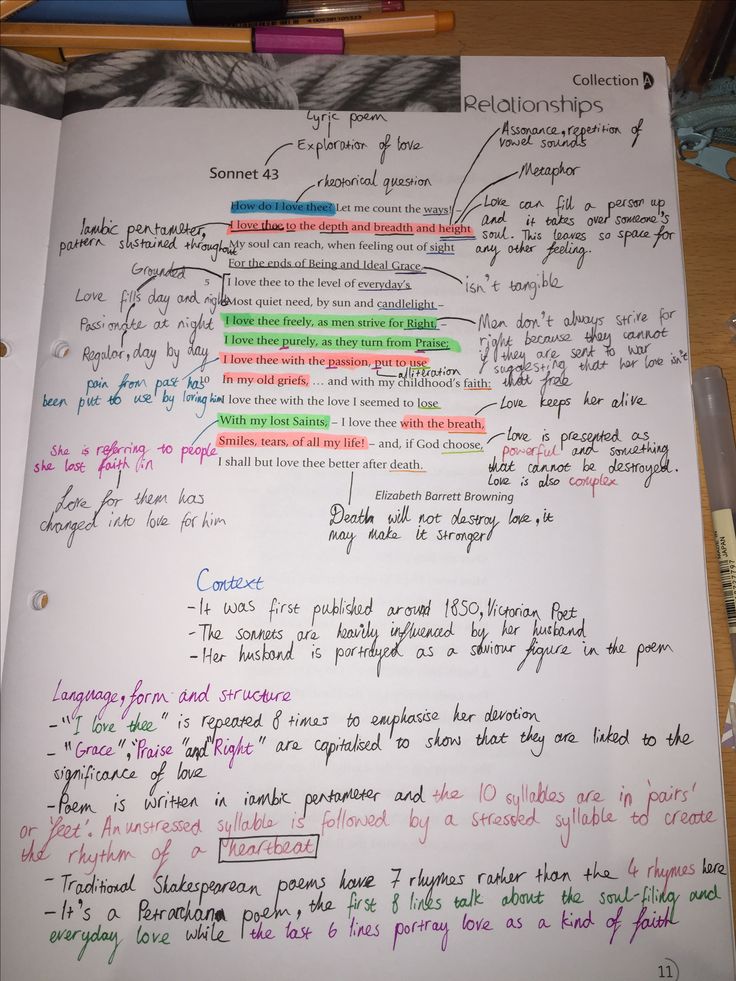 Collection A
Relationships
Lyric poem
Exploration of love
Assonance, repetition of
vowel sounds
Sonnet 43
rhetorical question
Metaphor
How do I love thee? Let me count the ways! –
I love thee to the depth and breadth and height
My soul can reach, when feeling out of sight
For the ends of Being and Ideal Grace.
5
I love thee to the level of everyday's
Most quiet need, by sun and candlelight –
I love thee freely, as men strive for Right, –
I love thee purely, as they turn from Praise;
I love thee with the passion, put to use
10
In my old griefs, ... and with my childhood's faith:
I love thee with the love I seemed to lose
With my lost Saints, – I love thee with the breath,
Smiles, tears, of all my life! – and, if God choose,
I shall but love thee better after death.
Elizabeth Barrett Browning
Iambic pentameter,
pattern sustained throughout
Grounded
Love fills day and night
Passionate at night
Regular, day by day
pain from past has
been put to use by loving him
She is referring to people
she lost faith in
Love for them has
changed into love for him
Love can fill a person up
and it takes over someone's
soul. This leaves so space for
any other feeling.
isn't tangible
Men don't always strive for
right because they cannot
if they are sent to war
suggesting that her love isn't
that free
alliteration
Love keeps her alive
Love is presented as
powerful and something
that cannot be destroyed.
Love is also complex
Death will not destroy love, it
may make it stronger
Context
- It was first published around 1850, Victorian Poet
- The sonnets are heavily influenced by her husband
- Her husband is portrayed as a saviour figure in the poem
Language, form and structure
- "I love thee" is repeated 8 times to emphasise her devotion
- "Grace", "Praise" and "Right" are capitalised to show that they are linked to the
significance of love
- Poem is written in iambic pentameter and the 10 syllables are in 'pairs'
or 'feet'. An unstressed syllable is followed by a stressed syllable to create
the rhythm of a heartbeat
- Traditional Shakespearean poems have 7 rhymes rather than the 4 rhymes here
- It's a Petrarchan poem, the first 8 lines talk about the soul-filing and
everyday love while the last 6 lines portray love as a kind of faith
11
JAPAN